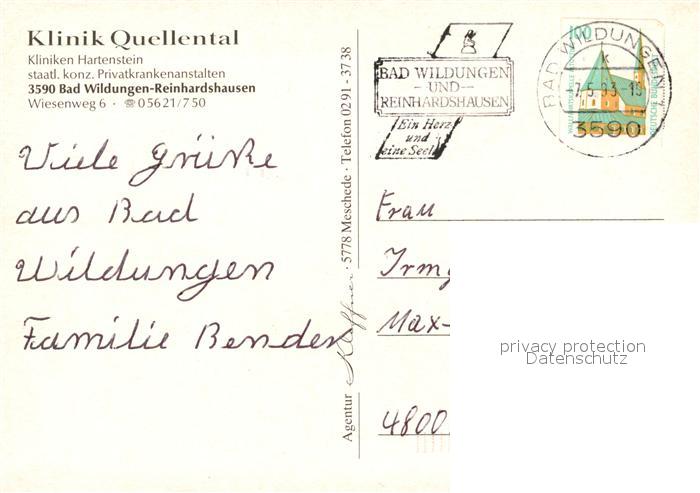 Klinik Quellental
Kliniken Hartenstein
staatl. konz. Privatkrankenanstalten
3590 Bad Wildungen-Reinhardshausen
Wiesenweg 6 · ☏ 05621/750
Viele Grüße
aus Bad
Wildungen
Familie Bender
Agentur Kleffner · 5778 Meschede · Telefon 0291-3738
BAD WILDUNGEN
-UND-
REINHARDSHAUSEN
Ein Herz
und
eine Seele
BAD WILDUNGEN 1
k
-7.5.93-15
3590
100
DEUTSCHE BUNDESPOST
Frau
Irmg
Max-
4800
privacy protection
Datenschutz